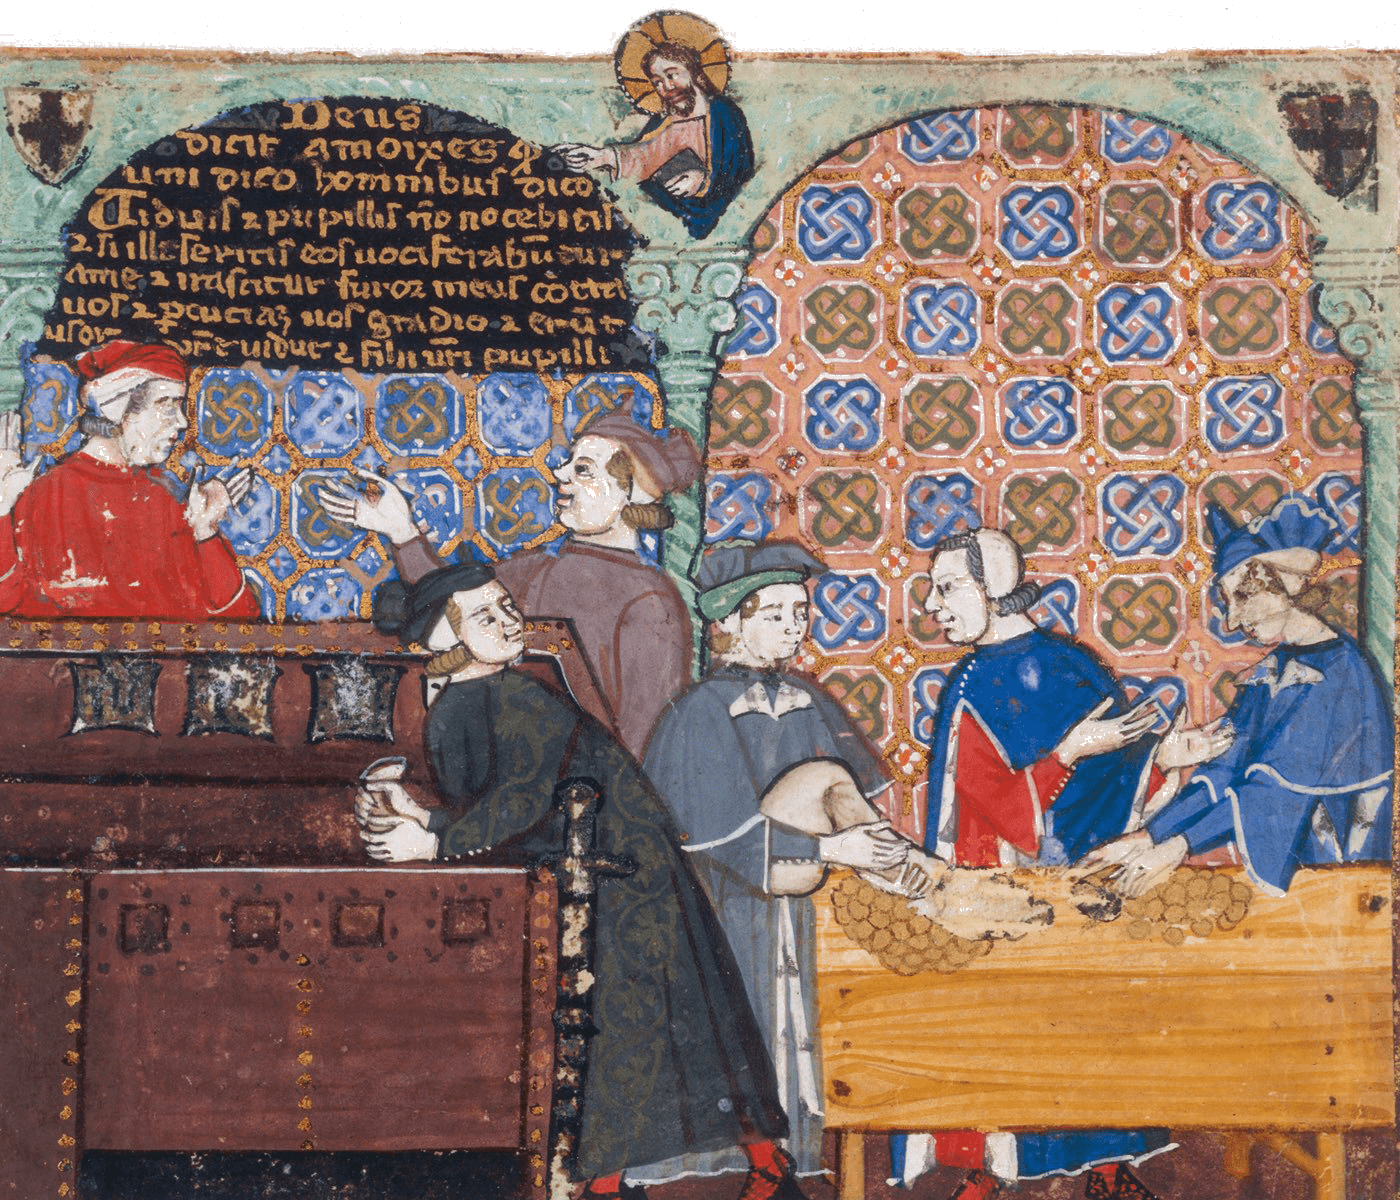 Deus
dicit amoixes q̄
uni dico hominibus dico
Viduis ⁊ pupillis nō nocebitis
⁊ si illeseritis eos uociferabūtur
ame ⁊ irascitur furor meus cōtra
uos ⁊ ꝑcuciaꝫ uos gladio ⁊ erūt
uxor uidue ⁊ filii ur̄i pupilli